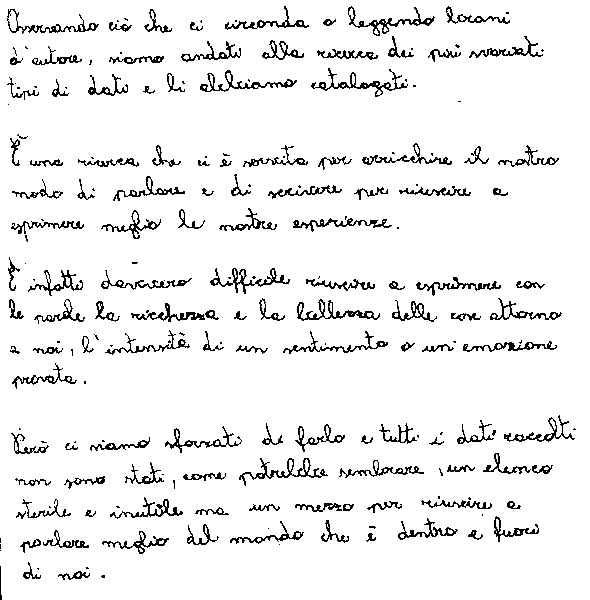 Osservando ciò che ci circonda o leggendo brani
d'autore, siamo andati alla ricerca dei più svariati
tipi di dati e li abbiamo catalogati.
È una ricerca che ci è servita per arricchire il nostro
modo di parlare e di scrivere per riuscire a
esprimere meglio le nostre esperienze.
È infatti davvero difficile riuscire a esprimere con
le parole la ricchezza e la bellezza delle cose attorno
a noi, l'intensità di un sentimento o un'emozione
provata.
Però ci siamo sforzati di farlo e tutti i dati raccolti
non sono stati, come potrebbe sembrare, un elenco
sterile e inutile ma un mezzo per riuscire a
parlare meglio del mondo che è dentro e fuori
di noi.